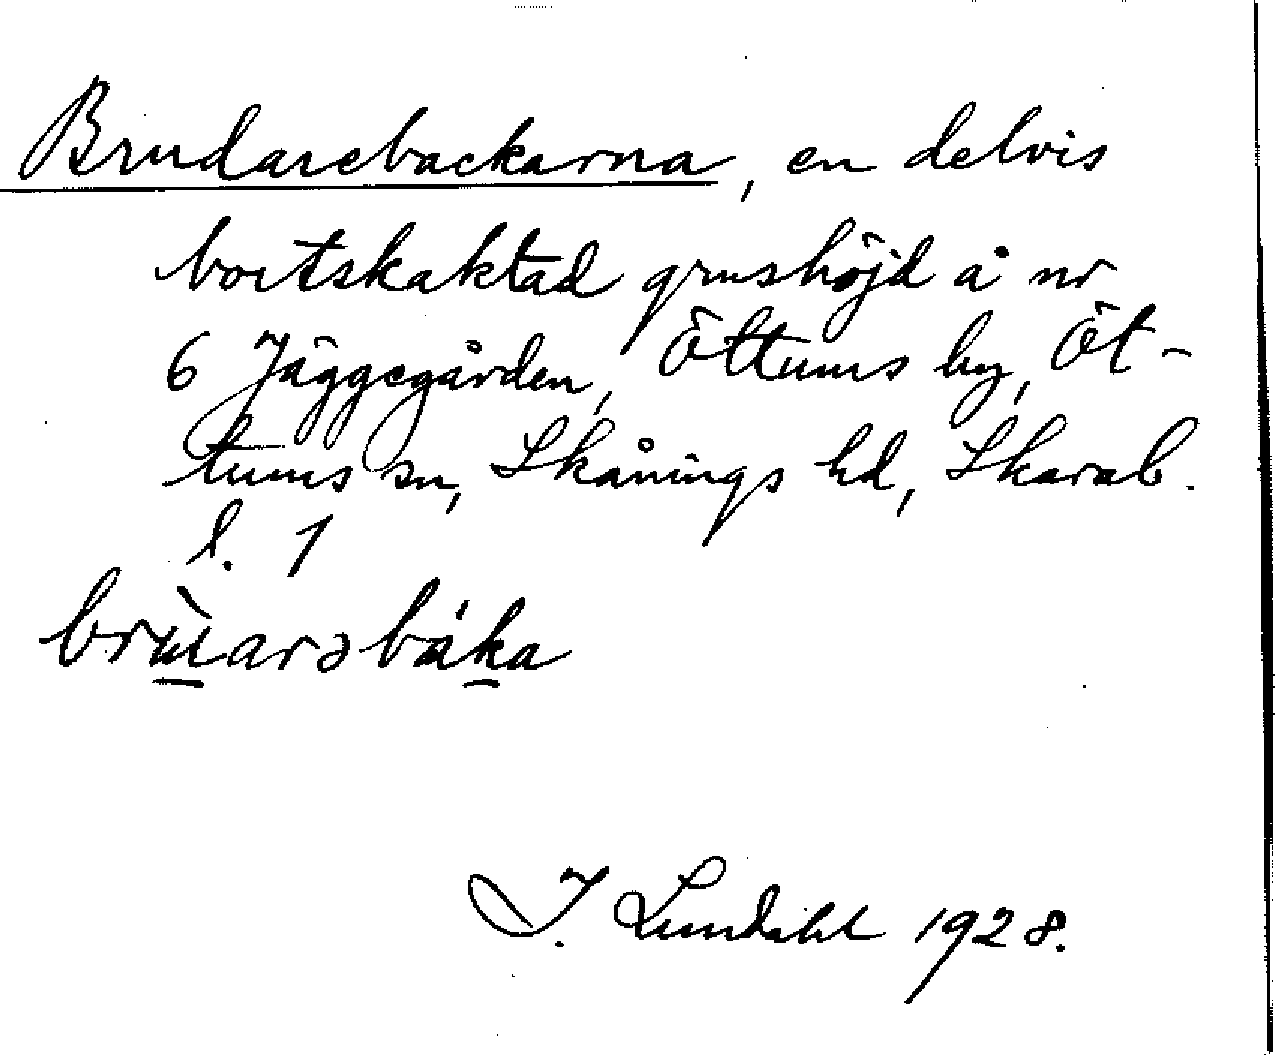 Brudarebackarna, en delvis
bortskaktad grushöjd å nr
6 Jäggegården, Öttums by, Öt-
tums sn, Skånings hd, Skarab.
l. 1
brùarəbáka
I. Lundahl 1928.